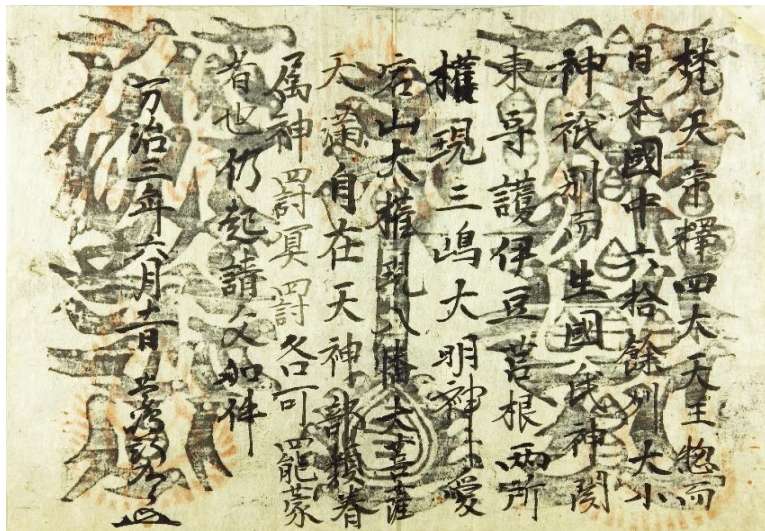 梵天帝釋四大天王惣而
日本國中六拾餘州大小
神祇別而生國氏神関
東守護伊豆筥根両所
權現三嶋大明神愛
宕山大權現八幡大菩薩
天滿自在天神部類眷
属神罰冥罰各可罷蒙
者也仍起請文如件
万治三年六月十一日